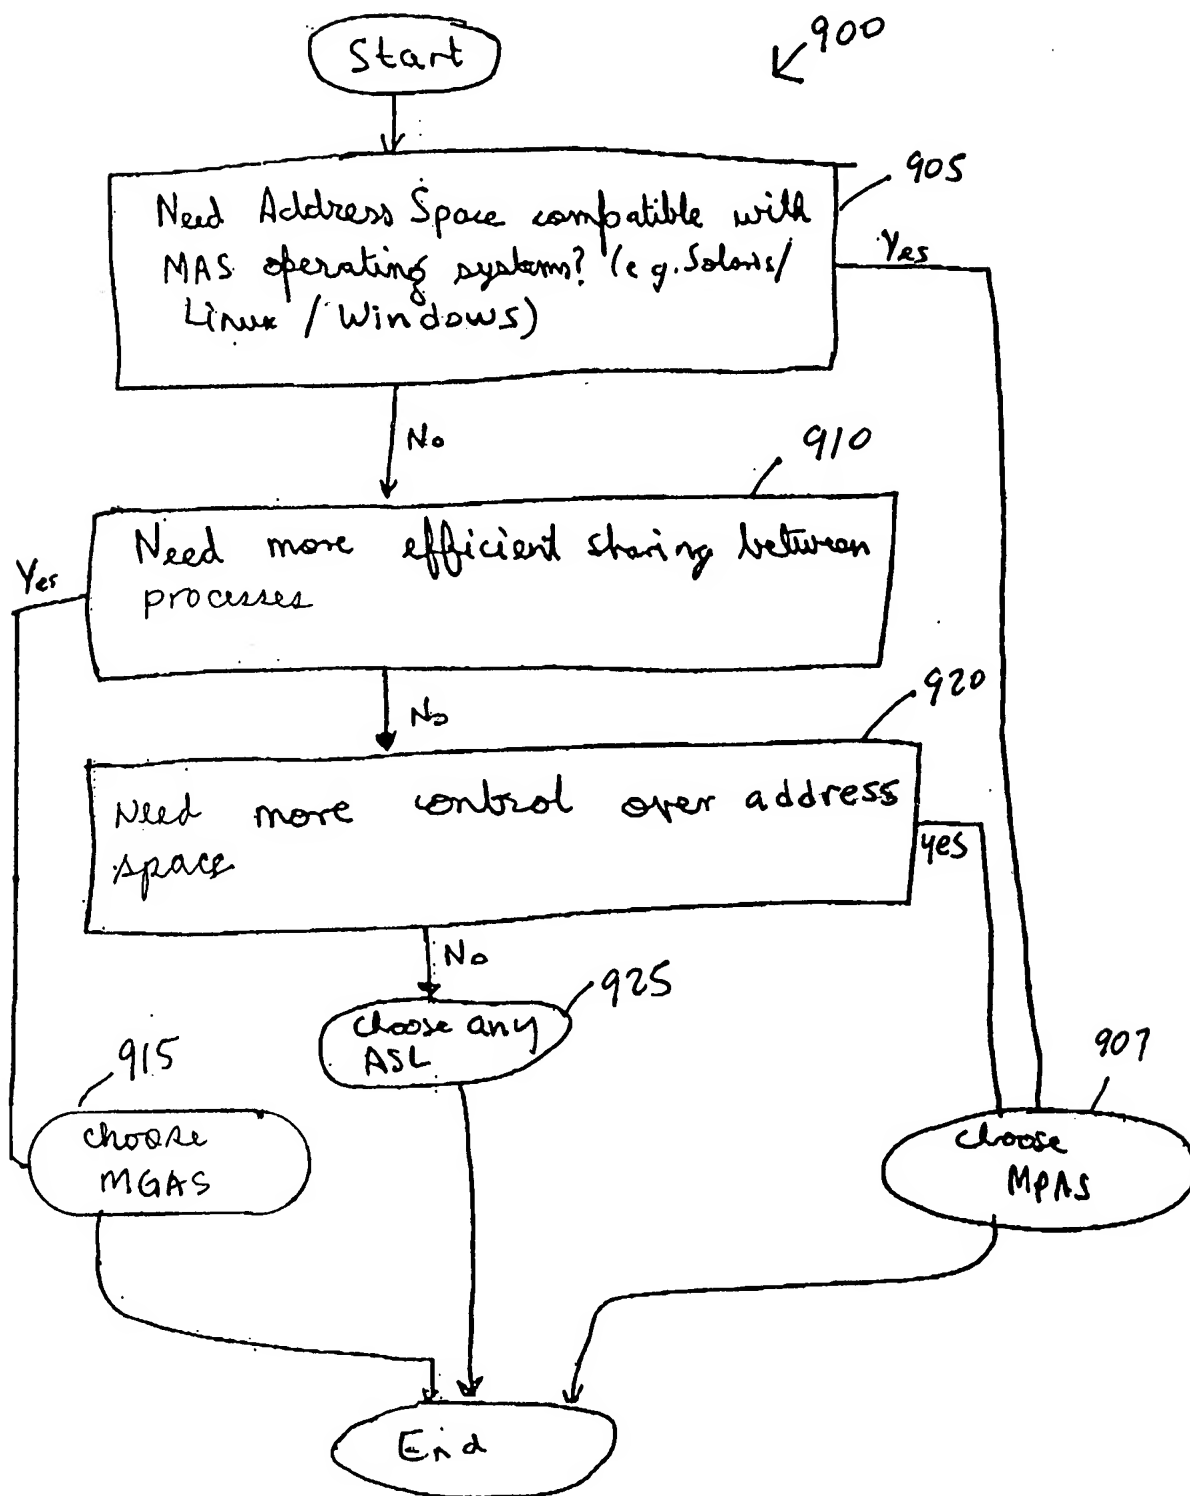 Start
900
905
Need Address Space compatible with
MAS operating system? (e.g. Solaris/
Linux / Windows)
Yes
No
910
Need more efficient sharing between
processes
Yes
No
920
Need more control over address
space
yes
No
925
choose any
ASL
915
choose
MGAS
907
choose
MPAS
End